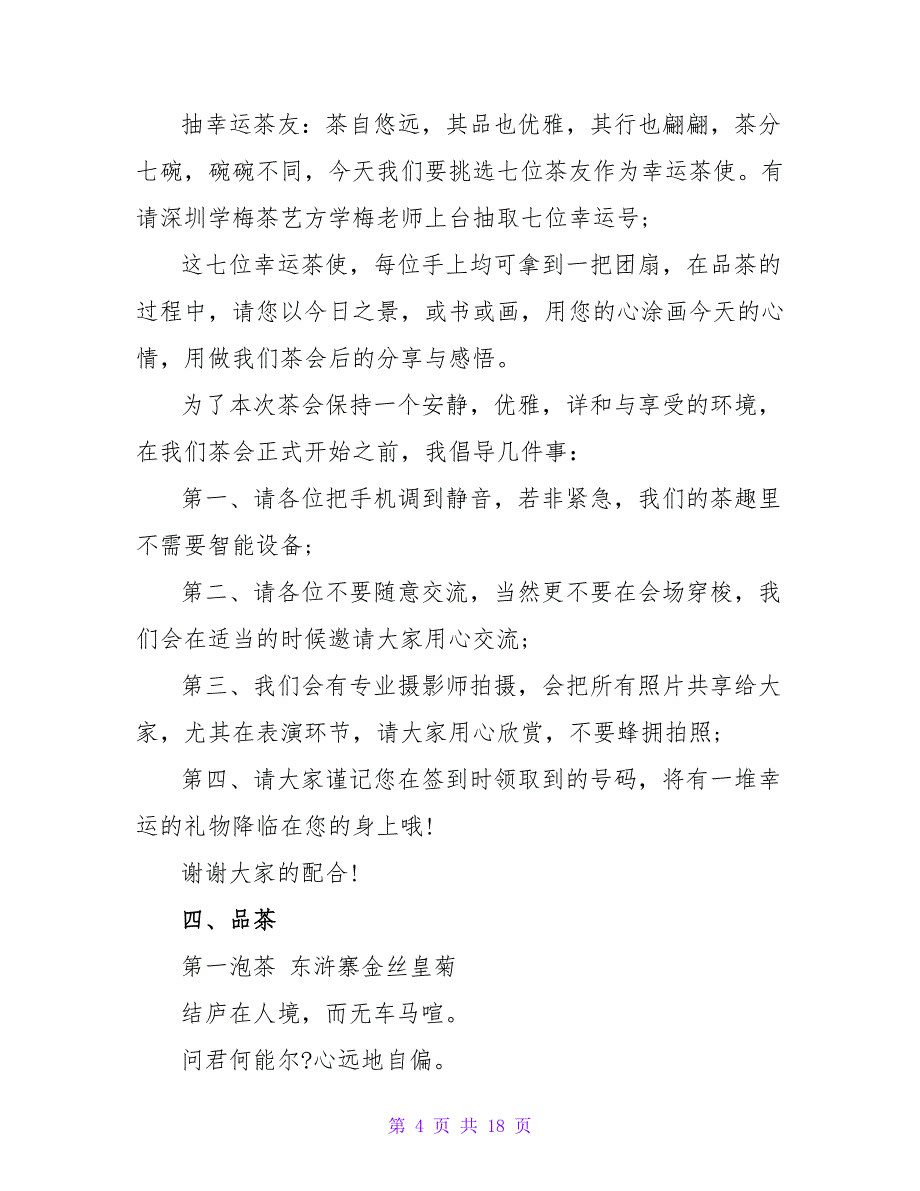 抽幸运茶友：茶自悠远，其品也优雅，其行也翩翩，茶分
七碗，碗碗不同，今天我们要挑选七位茶友作为幸运茶使。有
请深圳学梅茶艺方学梅老师上台抽取七位幸运号;
这七位幸运茶使，每位手上均可拿到一把团扇，在品茶的
过程中，请您以今日之景，或书或画，用您的心涂画今天的心
情，用做我们茶会后的分享与感悟。
为了本次茶会保持一个安静，优雅，详和与享受的环境，
在我们茶会正式开始之前，我倡导几件事：
第一、请各位把手机调到静音，若非紧急，我们的茶趣里
不需要智能设备;
第二、请各位不要随意交流，当然更不要在会场穿梭，我
们会在适当的时候邀请大家用心交流;
第三、我们会有专业摄影师拍摄，会把所有照片共享给大
家，尤其在表演环节，请大家用心欣赏，不要蜂拥拍照;
第四、请大家谨记您在签到时领取到的号码，将有一堆幸
运的礼物降临在您的身上哦!
谢谢大家的配合!
四、品茶
第一泡茶 东浒寨金丝皇菊
结庐在人境，而无车马喧。
问君何能尔?心远地自偏。
第 4 页 共 18 页